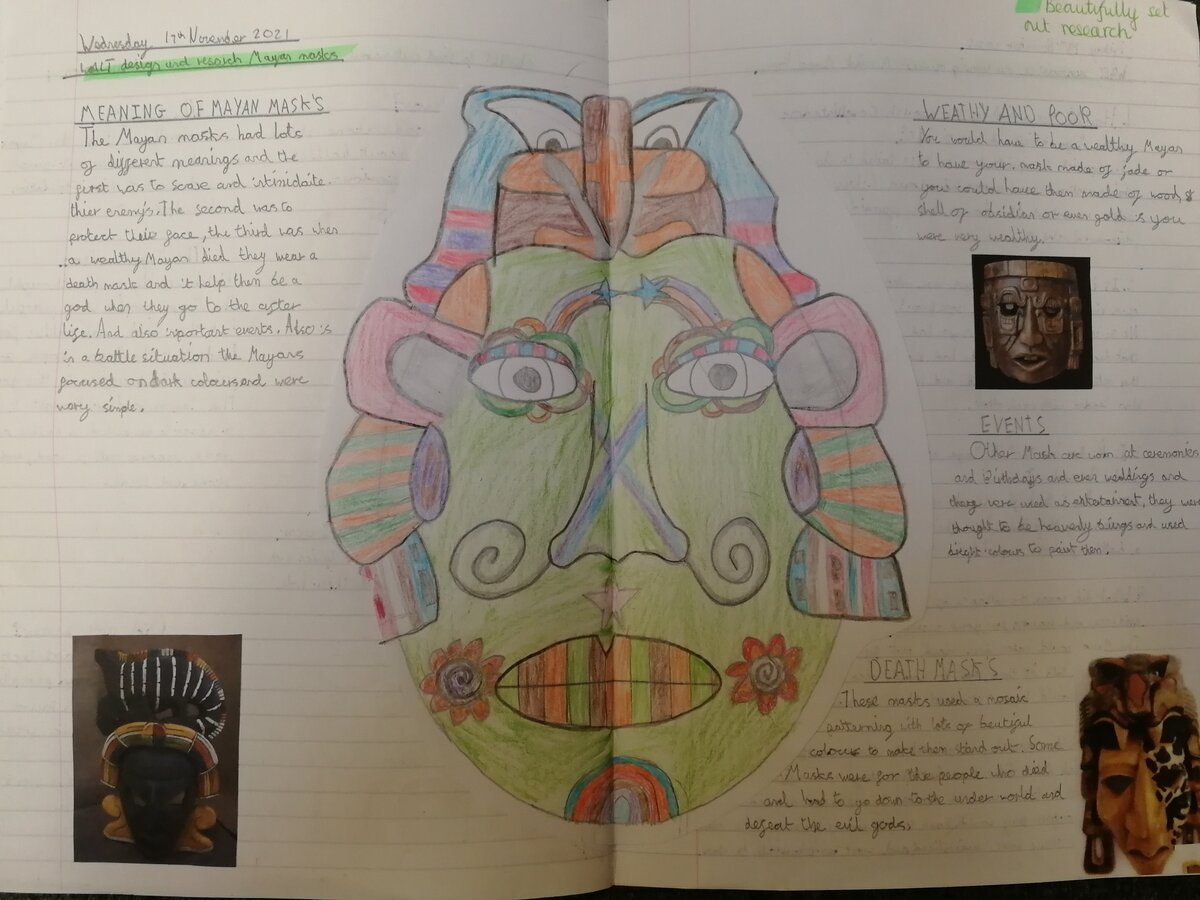 Wednesday, 17th November 2021
LO: LT design and research Mayan masks
MEANING OF MAYAN MASK'S
The Mayan masks had lots
of different meanings and the
first was to scare and intinidate
thier enemy's. The second was to
protect their face, the third was when
a wealthy Mayan died they wear a
death mask and it help then be a
god when they go to the after
life. And also inportant events. Also if
in a battle situation the Mayans
focused on dark colours and were
very simple.
Beautifully set
out research
WEATHY AND POOR
You would have to be a wealthy Mayan
to have your mask made of jade or
you could have them made of wood,
shell of obsidian or even gold if you
were very wealthy.
EVENTS
Other Mask are worn at ceremonies
and Birthdays and even weddings and
were used as entertainment, they were
thought to be heavenly beings and used
bright colours to paint them.
DEATH MASK'S
These masks used a mosaic
patterning with lots of beutiful
colours to make them stand out. Some
Masks were for the people who died
and had to go down to the under world and
defeat the evil gods.